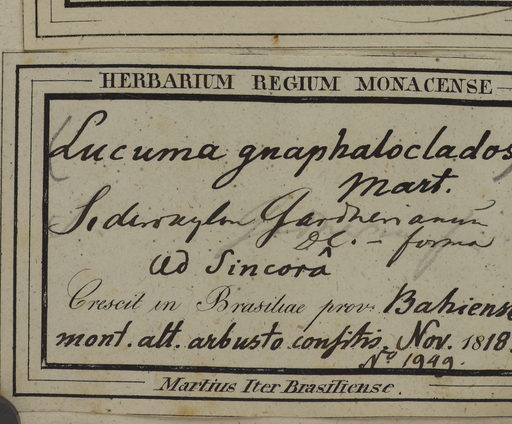 HERBARIUM REGIUM MONACENSE
(Lucuma gnaphaloclados)
Mart.
Sideroxylon Gardnerianum
DC. – forma
Ad Sincorâ
Crescit in Brasiliae prov. Bahiens
mont. alt. arbusto consitis. Nov. 1818.
No 1949.
Martius Iter Brasiliense.